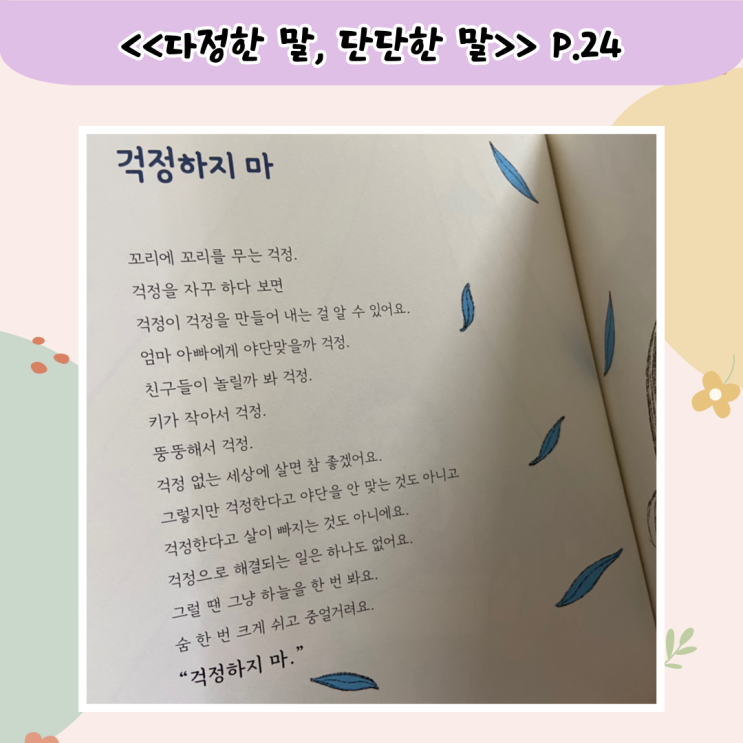 <<다정한 말, 단단한 말>> P.24
걱정하지 마
꼬리에 꼬리를 무는 걱정.
걱정을 자꾸 하다 보면
걱정이 걱정을 만들어 내는 걸 알 수 있어요.
엄마 아빠에게 야단맞을까 걱정.
친구들이 놀릴까 봐 걱정.
키가 작아서 걱정.
뚱뚱해서 걱정.
걱정 없는 세상에 살면 참 좋겠어요.
그렇지만 걱정한다고 야단을 안 맞는 것도 아니고
걱정한다고 살이 빠지는 것도 아니에요.
걱정으로 해결되는 일은 하나도 없어요.
그럴 땐 그냥 하늘을 한 번 봐요.
숨 한 번 크게 쉬고 중얼거려요.
“걱정하지 마.”